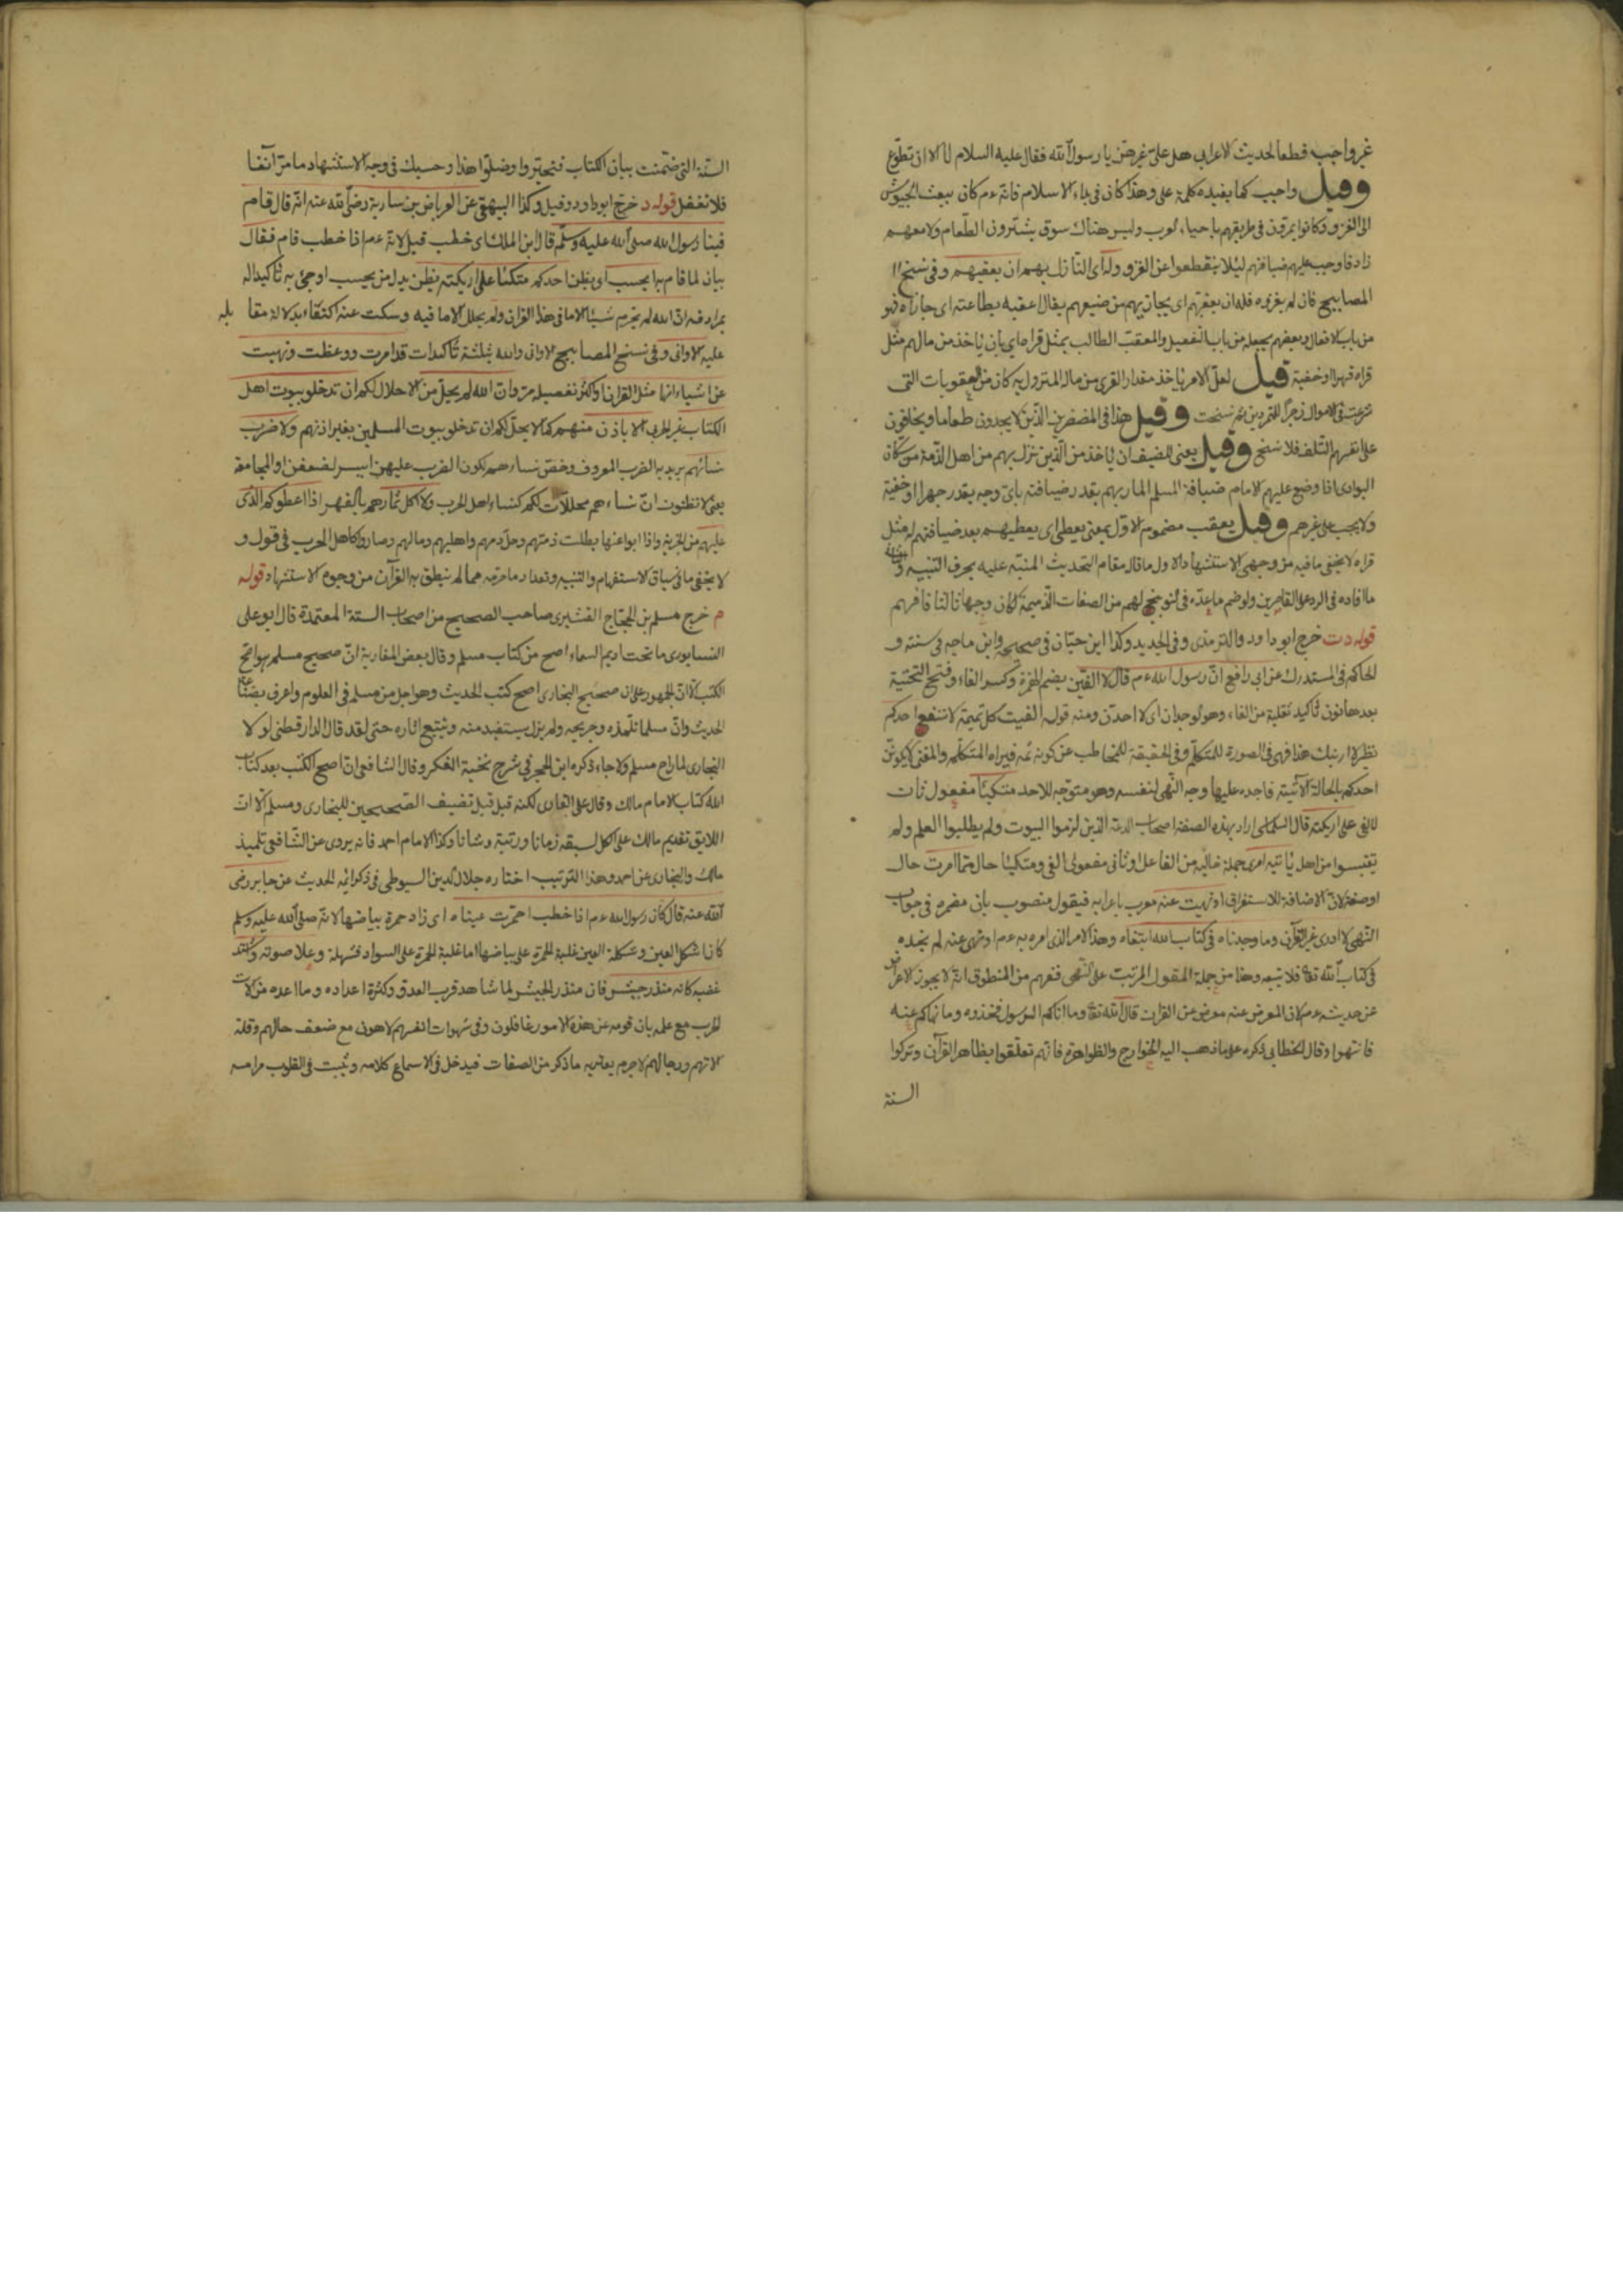 غير واجب قطعا لحديث الاعرابي هل عليّ غيرهنّ يا رسول الله فقال عليه السلام لا الا ان تطوّع
وقيل واجب كما يفيده كلمة على وهذا كان فى بدء الاسلام فانه عم كان يبعث الجيوش
الى الغزو وكانوا يمرّون فى طريقهم باحياء العرب وليس هناك سوق يشترون الطعام ولا معهم
زاد فاوجب عليهم ضيافتهم لئلا ينقطعوا عن الغزو وله اى النازل بهم ان يعقبهم وفى نسخ
المصابيح فان لم يقروه فله ان يعقبهم اى يجازيهم من صنيعهم يقال اعقبه بطاعته اى جازاه فهو
من باب الافعال وبعضهم يجعله من باب التفعيل والمعقب الطالب بمثل قراه اى بان ياخذ من مالهم مثل
قراه قهرا او خفية قيل لعل الامر باخذ مقدار القرى من مال المنزول به كان من العقوبات التى
شرعت فى الاموال زجرا للمتمردين ثم نسخت وقيل هذا فى المضطرين الذين لا يجدون طعاما ويخافون
على انفسهم التلف فلا نسخ وقيل يعنى للضيف ان ياخذ من الذين نزل بهم من اهل الذمة من سكان
البوادى اذا وضع عليهم الامام ضيافة المسلم المار بهم بقدر ضيافته باىّ وجه يقدر جهرا او خفية
ولا يجب على غيرهم وقيل يعقب مضموم الاول بمعنى يعطى اى يعطيهم بعد ضيافتهم له مثل
قراه لا يخفى ما فيه من وجهى الاستشهاد الاول ما قال مقام التحديث المنبّه عليه بحرف التنبيه
ما افاده فى الرد على القاصرين ولو ضم ما عدّه فى لهم من الصفات الذميمة لكان وجها ثالثا فافهم
قوله دت خرج ابو داود والترمذى وفى الجديد وكذا ابن حبان فى صحيحه وابن ماجه فى سننه و
الحاكم فى المستدرك عن ابى رافع ان رسول الله عم قال لا الفين بضم الهمزة وكسر الفاء وفتح التحتية
بعدها نون تأكيد ثقيلة من الفاء وهو لوجدان اى لا اجدن ومنه قوله الفيت كل تميمة لا تنفع احدكم
نظيره لا ارينك هذا فهى فى الصورة للمتكلم وفى الحقيقة للمخاطب عن كونه ثمه فيراه المتكلم والمعنى لا يكونن
احدكم بالحالة الآتية فاجده عليها وجه النهى لنفسه وهو متوجه للاحد متكيئا مفعول ثان
لالفى على اريكته قال اراد بهذه الصفة اصحاب الدعة الذين لزموا البيوت ولم يطلبوا العلم ولم
يقتبسوا من اهل ياتيه امرى جملة حالية من الفاعل او ثانى مفعولى الفى ومتكيئا حال مما امرت حال
او صفة لان الاضافة للاستغراق او نهيت عنه معرب باعرابه فيقول منصوب بان مضمرة فى جواب
النهى لا ادرى غير القرآن وما وجدناه فى كتاب الله اتبعناه وهذا الامر الذى امر به عم او نهى عنه لم نجده
فى كتاب الله تعا فلا نتبعه وهذا من جملة المقول المرتب على النهى فنفهم من المنطوق انه لا يجوز الاعراض
عن حديثه عم لان المعرض عنه معرض عن القرآن قال الله تعا وما اتاكم الرسول فخذوه وما نهاكم عنه
فانتهوا وقال الخطابى ذكره على ما ذهب اليه الخوارج والظواهر فانهم تعلقوا بظاهر القرآن وتركوا
السنة
السنة التى ضمّنت بيان الكتاب فتحيروا وضلوا هذا وحسبك فى وجه الاستشهاد ما مر آنفا
فلا تغفل قوله د خرج ابو داود وقيل وكذا البيهقى عن العرباض بن سارية رضى الله عنه انه قال قام
فينا رسول الله صلى الله عليه وسلم قال ابن الملك اى خطب قيل لانه عم اذا خطب قام فقال
بيان لما قام به ايحسب اى يظن احدكم متكئا على اريكته يظن بدل من يحسب او جئ به تأكيدا له
بمرادفه ان الله لم يحرم شيئا الا ما فى هذا القران ولم يحلل الا ما فيه وسكت عنه اكتفاء بدلالة مقا بله
عليه الا وانى وفى نسخ المصابيح الا وانى والله بثلثة تأكيدات قد امرت ووعظت ونهيت
عن اشياء انها مثل القران او اكثر تفصيله مر وان الله لم يحل من الاحلال لكم ان تدخلوا بيوت اهل
الكتاب غير الحربى الا باذن منهم كما لا يحل لكم ان تدخلوا بيوت المسلمين بغير اذنهم ولا ضرب
نسائهم يريد به الضرب المعروف وخص نساءهم لكون الضرب عليهن ايسر لضعفن او المجامعة
يعنى لا تظنون ان نساءهم محللات لكم كنساء اهل الحرب ولا اكل ثمارهم بالقهر اذا اعطوكم الذى
عليهم من الجزية واذا ابوا عنها بطلت ذمتهم وحل دمهم واهليهم ومالهم وصاروا كاهل الحرب فى قول و
لا يخفى ما فى سياق الاستفهام والتنبيه وتعداد ما حرمه مما لم ينطق به القرآن من وجوه الاستشهاد قوله
م خرج مسلم بن الحجاج القشيرى صاحب الصحيح من اصحاب الستة المعتمدة قال ابو على
النيسابورى ما تحت اديم السماء اصح من كتاب مسلم وقال بعض المغاربة ان صحيح مسلم هو اصح
الكتب الا ان الجمهور على ان صحيح البخارى اصح كتب الحديث وهو اجل من مسلم فى العلوم واعرف بصناعة
الحديث وان مسلما تلميذه وخريجه ولم يزل يستفيد منه ويتبع اثاره حتى لقد قال الدارقطنى لو لا
البخارى لما راح مسلم ولا جاء ذكره ابن الحجر فى شرح نخبة الفكر وقال الشافعى ان اصح الكتب بعد كتاب
الله كتاب الامام مالك وقال على القارى لكنه قيل قبل تصنيف الصحيحين للبخارى ومسلم الا ان
اللايق تقديم مالك على الكل لسبقه زمانا ورتبة وشانا وكذا الامام احمد فانه يروى عن الشافعى تلميذ
مالك والبخارى عن احمد وهذا الترتيب اختاره جلال الدين السيوطى فى ذكر ائمة الحديث عن جابر رضى
الله عنه قال كان رسول الله عم اذا خطب احمرت عيناه اى زاد حمرة بياضها لانه صلى الله عليه وسلم
كان اشكل العين وشكلة العين غلبة الحمرة على بياضها اما غلبة الحمرة على السواد فشهلة وعلا صوته واشتد
غضبه كانه منذر جيش فان منذر الجيش لما شاهد قرب العدو وكثرة اعداده وما اعده من آلات
الحرب مع علمه بان قومه عن هذه الامور غافلون وفى شهوات انفسهم لاهون مع ضعف حالهم وقلة
آلاتهم ورجالهم لا جرم يعتريه ما ذكر من الصفات فيدخل فى الاسماع كلامه ويثبت فى القلوب مرامه